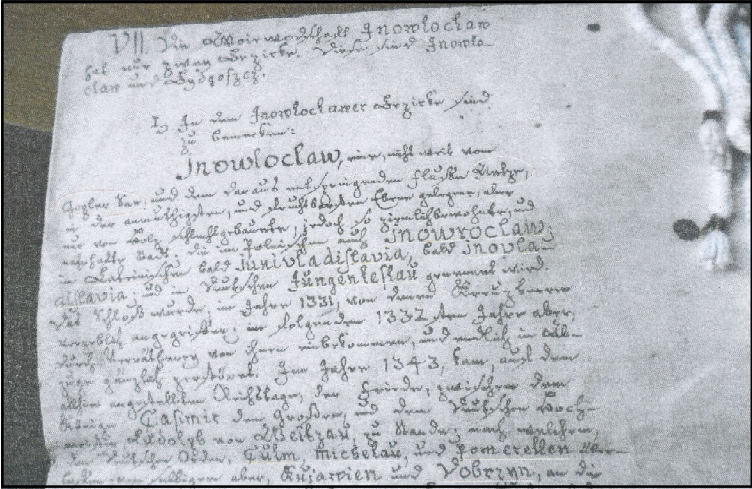 VII. Die Woiwodschaft Inowłocław
hat nur zwey Bezirke. Diese sind Inowło-
claw und Bydgoszcz.
I, In dem Inowłocławer Bezirke sind
zu bemerken:
Inowłocław, eine, nicht weit vom
See, und dem daraus entspringenden Flusse Netze,
in der anmuthigsten, und fruchtbarsten Ebene gelegene, aber
nur von Holz schlecht gebaute, jedoch so ziemlich bewohnte, und
Stadt; die im Polnischen auch Inowrocław,
im Lateinischen bald Junivladislavia, bald Inovla-
dislavia, und im Deutschen Jungenleslau genannt wird.
Das Schloß wurde, im Jahre 1331, von denen Kreuzherren
vergeblich angegriffen; im folgenden 1332sten Jahre aber,
durch von ihnen einbekommen, und endlich im
gänzlich zerstöret. Im Jahre 1343, kam, auf dem
allhier angestellten Reichstage, der Friede, zwischen dem
Könige Casimir dem Großen, und dem Deutschen Hoch-
meister Rudolph von Weitzau, zu Stande; nach welchem,
dem Deutschen Orden, Culm, Michelau, und Pomerellen
aber, Kujawien und Dobrzyn, an die